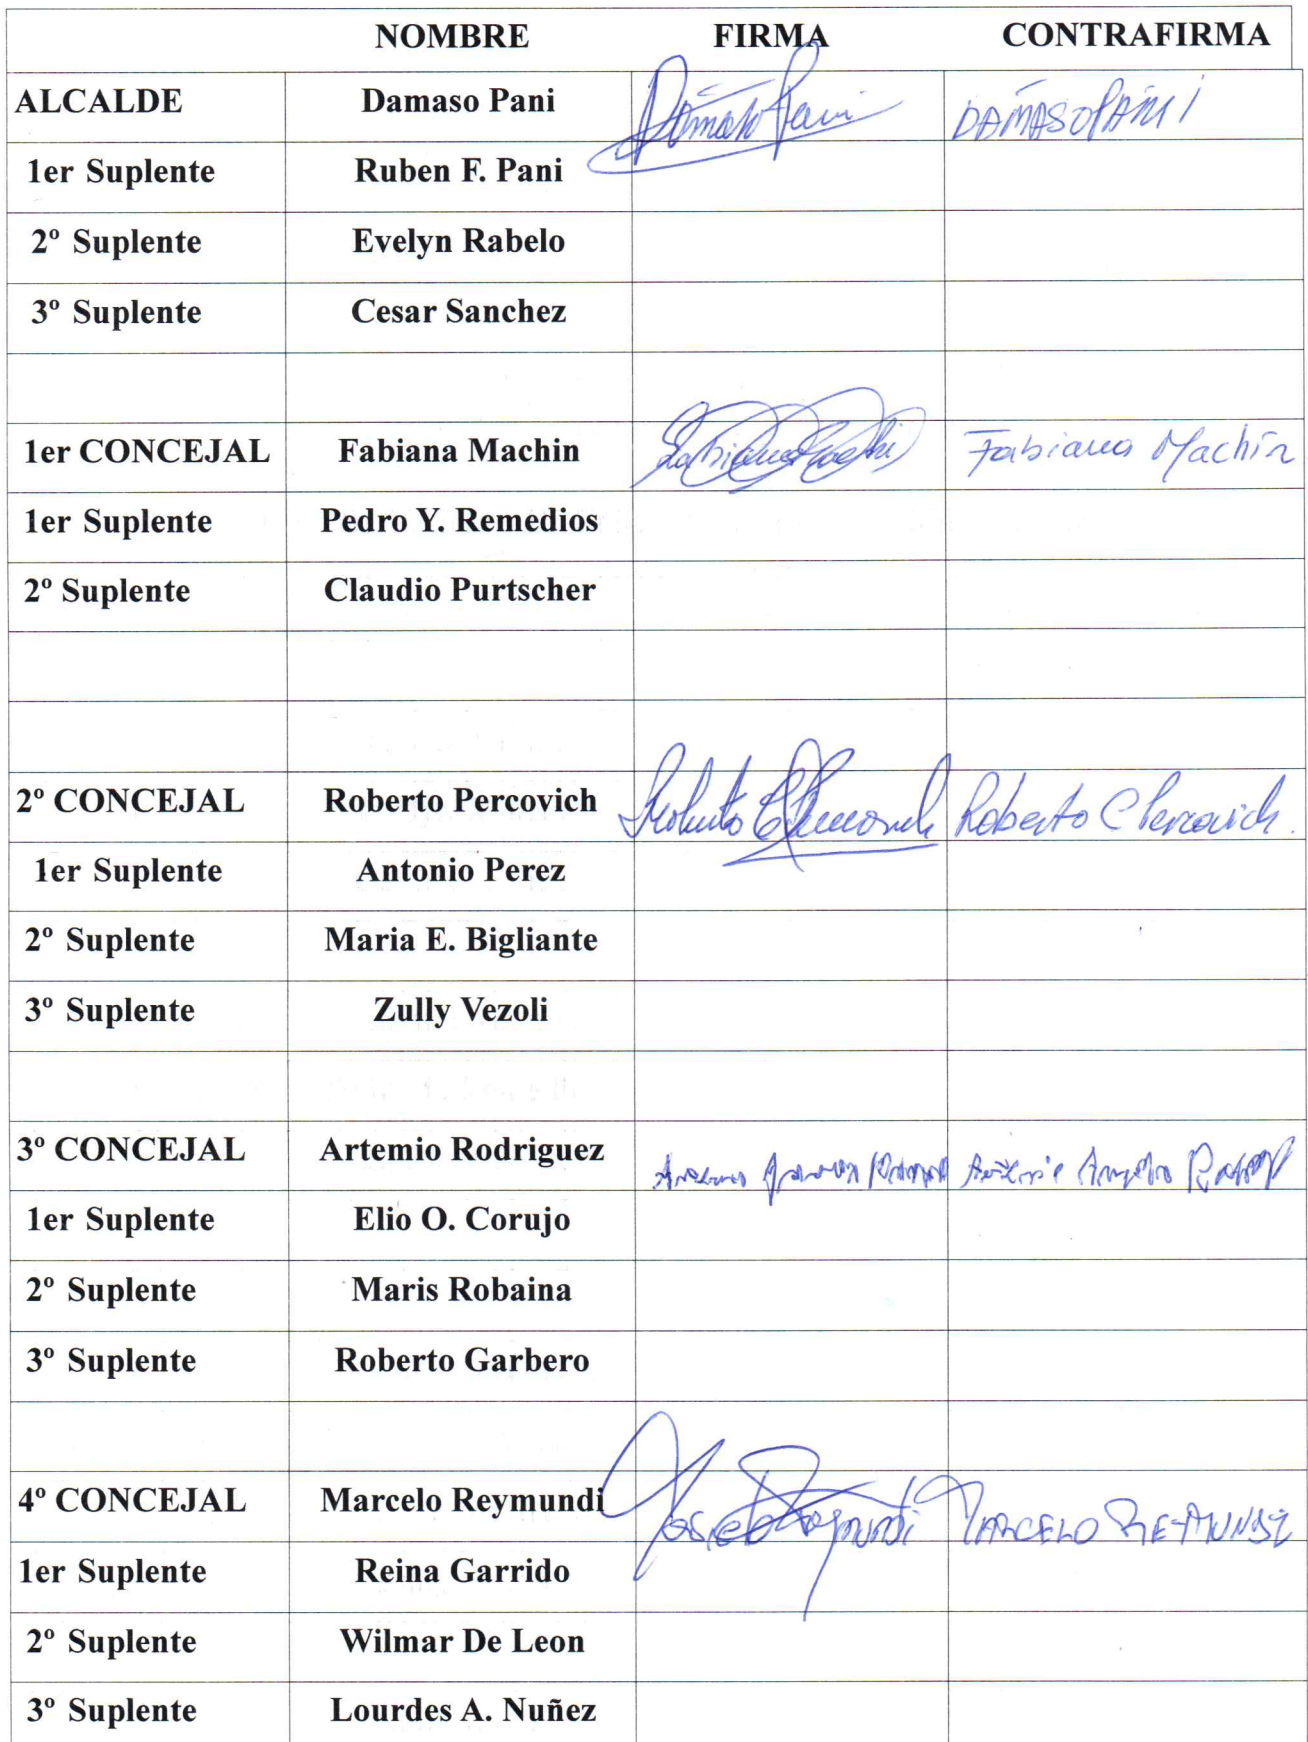 NOMBRE FIRMA CONTRAFIRMA
ALCALDE Damaso Pani DAMASO PANI
1er Suplente Ruben F. Pani
2º Suplente Evelyn Rabelo
3º Suplente Cesar Sanchez
1er CONCEJAL Fabiana Machin Fabiana Machín
1er Suplente Pedro Y. Remedios
2º Suplente Claudio Purtscher
2º CONCEJAL Roberto Percovich Roberto C Percovich.
1er Suplente Antonio Perez
2º Suplente Maria E. Bigliante
3º Suplente Zully Vezoli
3º CONCEJAL Artemio Rodriguez
1er Suplente Elio O. Corujo
2º Suplente Maris Robaina
3º Suplente Roberto Garbero
4º CONCEJAL Marcelo Reymundi MARCELO REYMUNDI
1er Suplente Reina Garrido
2º Suplente Wilmar De Leon
3º Suplente Lourdes A. Nuñez